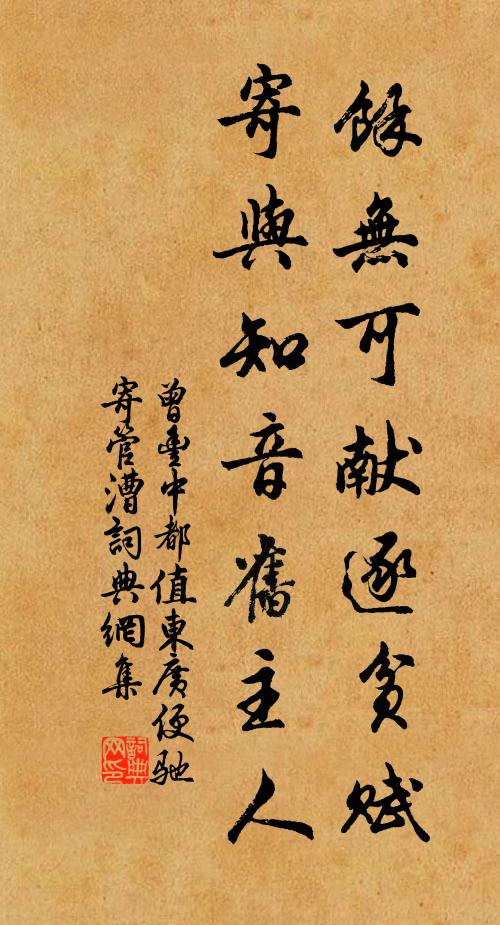 餘無可献逐貧賦
寄與知音舊主人
曾豊中都值東廣便馳
寄管漕詞典網集
詞典网印